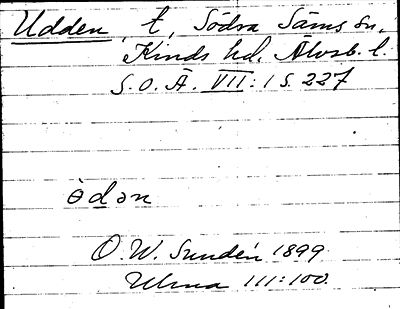 Udden, t, Södra Säms sn,
Kinds hd. Älvsb. l.
S.O.Ä. VII:1 S. 227
ödən
O.W. Sundén 1899
Ulma 111:100.